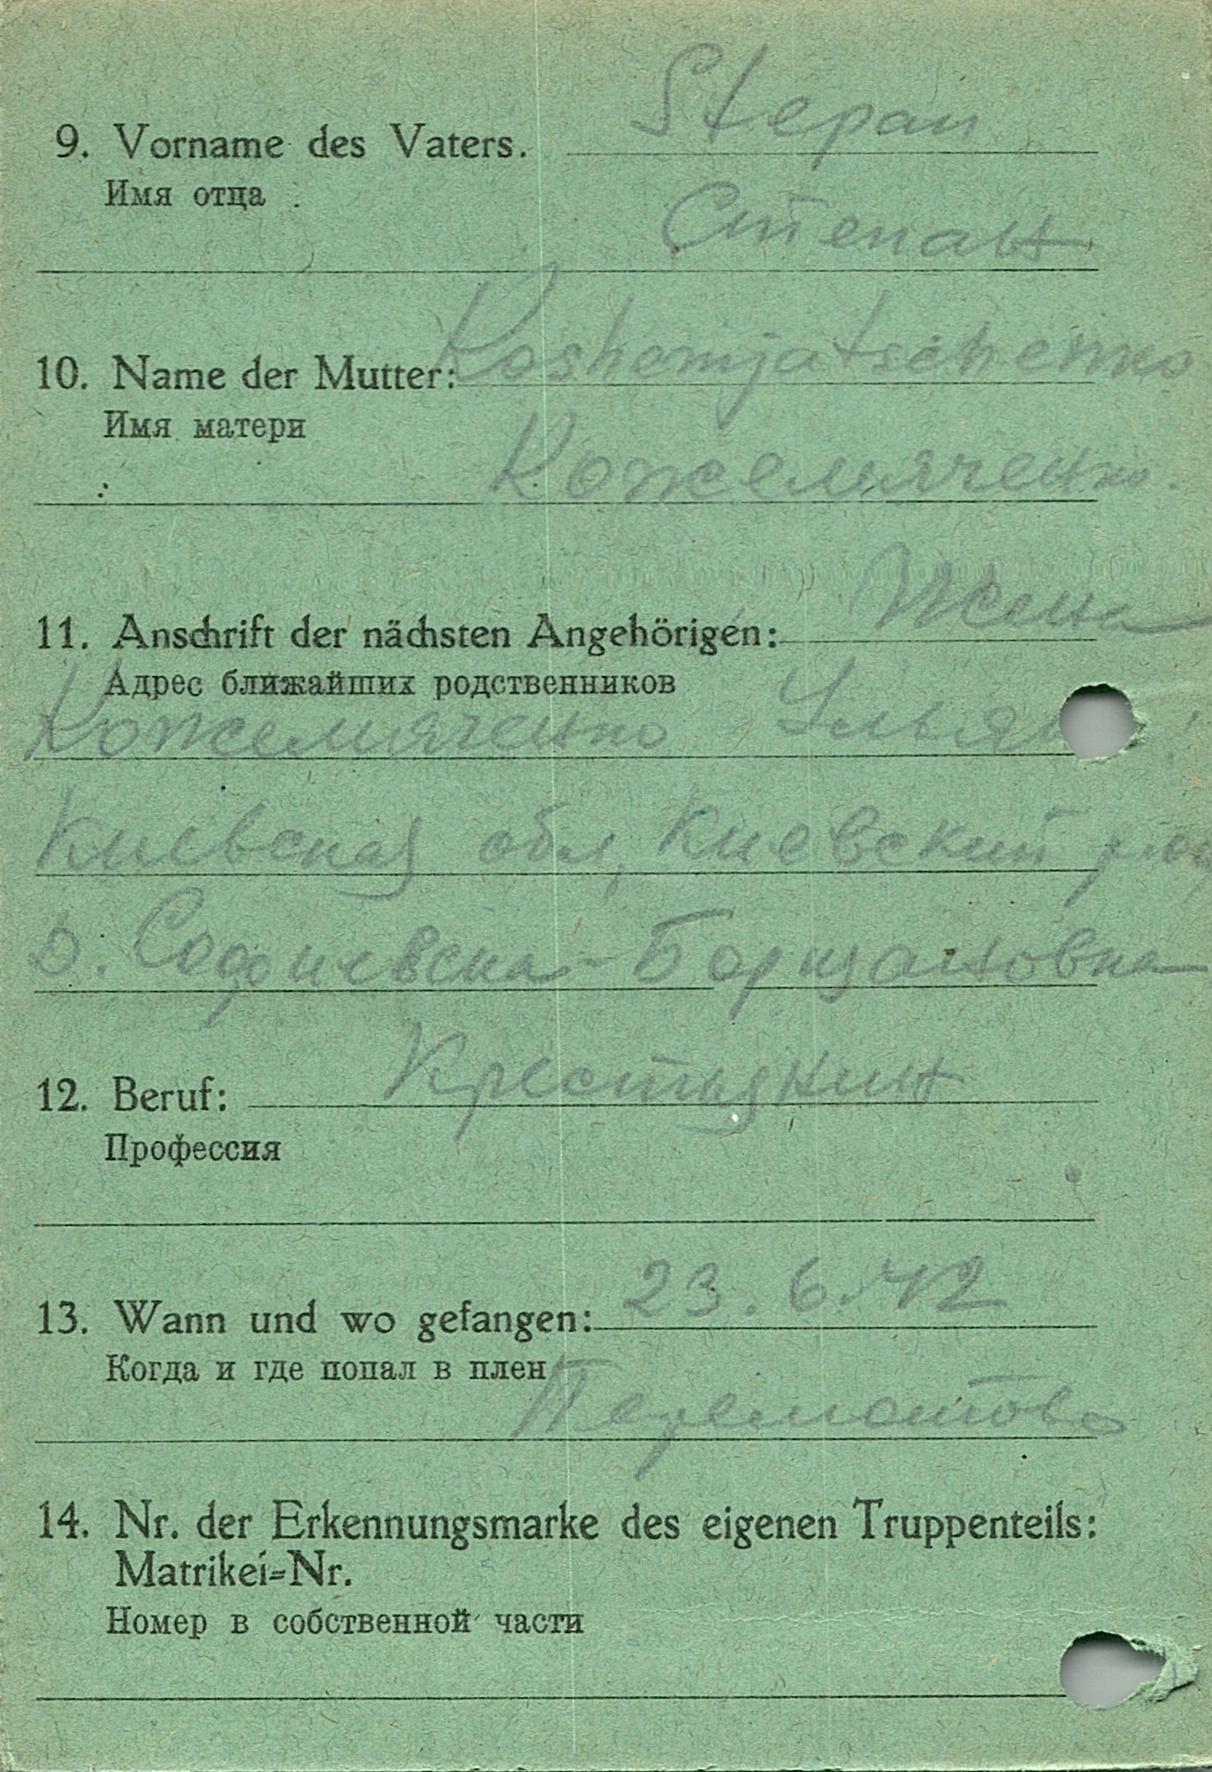 Stepan
9. Vorname des Vaters.
Имя отца :
Степан
Koshemjatschenko
10. Name der Mutter:
Имя матери
Кожемяченко.
Жена
11. Anschrift der nächsten Angehörigen:
Адрес ближайших родственников
Кожемяченко Ульян
Киевская обл, Киевский
с. Софиевска-Борщаговка
12. Beruf: Крестьянин
Профессия
13. Wann und wo gefangen: 23.6.42
Когда и где попал в плен
14. Nr. der Erkennungsmarke des eigenen Truppenteils:
Matrikel=Nr.
Номер в собственной части